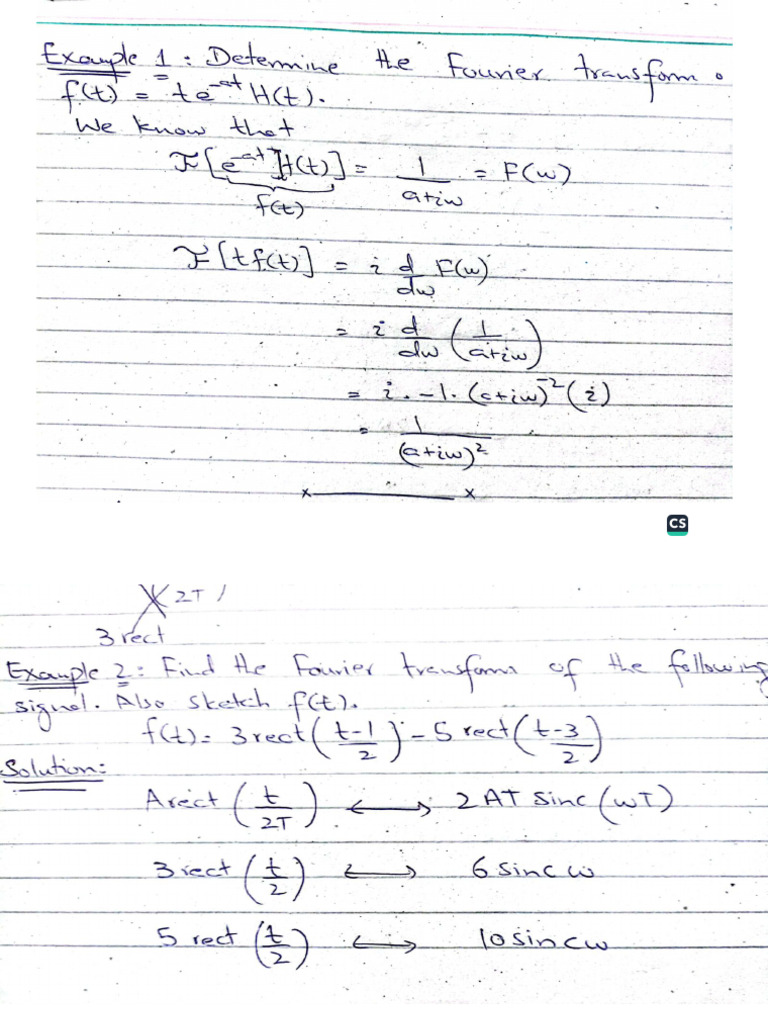 Example 1: Determine the Fourier transform o
f(t) = te^-at H(t).
We know that
F[e^-at H(t)] = 1/(a+iω) = F(ω)
f(t)
F[t f(t)] = i d/dω F(ω)
= i d/dω (1/(a+iω))
= i · -1 · (a+iω)^-2 (i)
= 1/(a+iω)^2
x x
CS
2T
3 rect
Example 2: Find the Fourier transform of the following
signal. Also sketch f(t).
f(t) = 3 rect((t-1)/2) - 5 rect((t-3)/2)
Solution:
A rect(t/2T) ⟷ 2AT sinc(ωT)
3 rect(t/2) ⟷ 6 sinc ω
5 rect(t/2) ⟷ 10 sinc ω